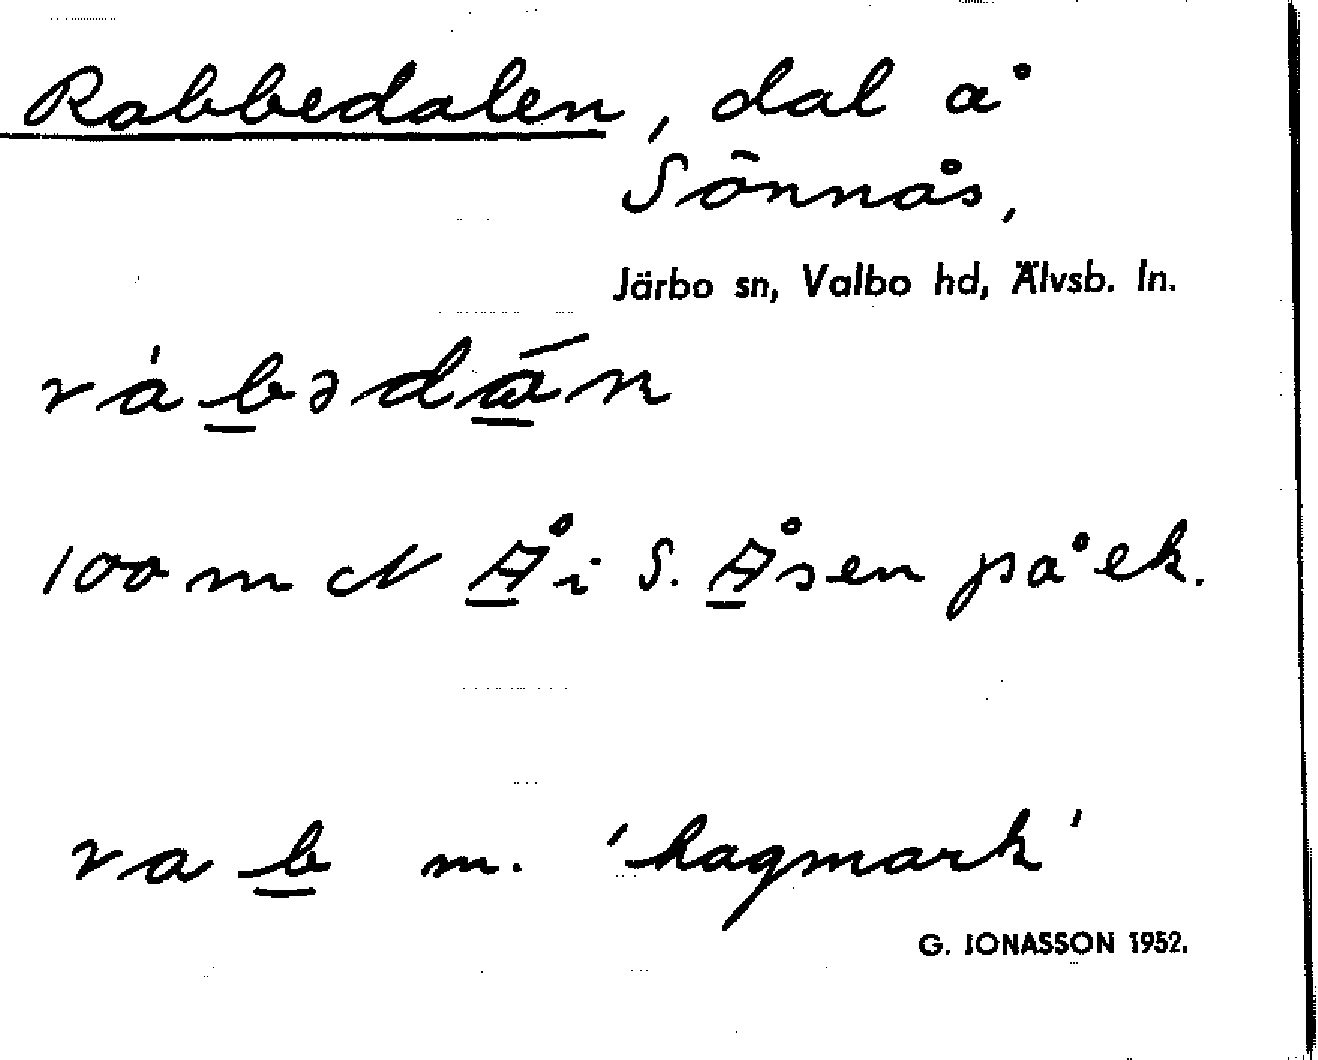 Rabbedalen, dal å
Sönnäs,
Järbo sn, Valbo hd, Älvsb. ln.
100 m N Å i S. Åsen på ek.
rab m. 'hagmark'
G. JONASSON 1952.